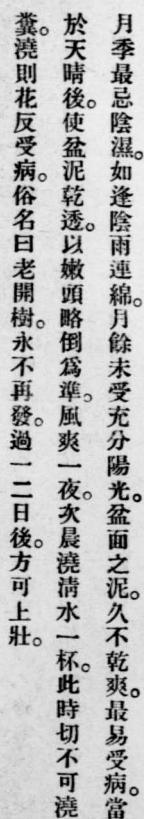 月季最忌陰濕。如逢陰雨連綿。月餘未受充分陽光。盆面之泥。久不乾爽。最易受病。當
於天晴後。使盆泥乾透。以嫩頭略倒爲準。風爽一夜。次晨澆清水一杯。此時切不可澆
糞。澆則花反受病。俗名曰老開樹。永不再發。過一二日後。方可上壯。